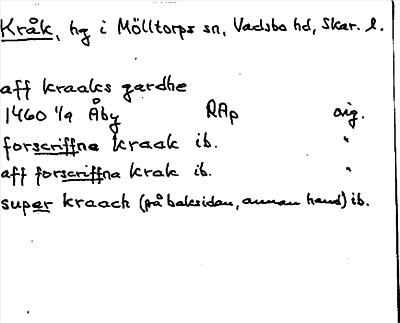 Kråk, hg i Mölltorps sn, Vadsbo hd, Skar. l.
aff kraaks gardhe
1460 1/9 Åby RAp orig.
forscriffna kraak ib. "
aff forscriffna krak ib. "
super kraach (på baksidan, annan hand) ib.